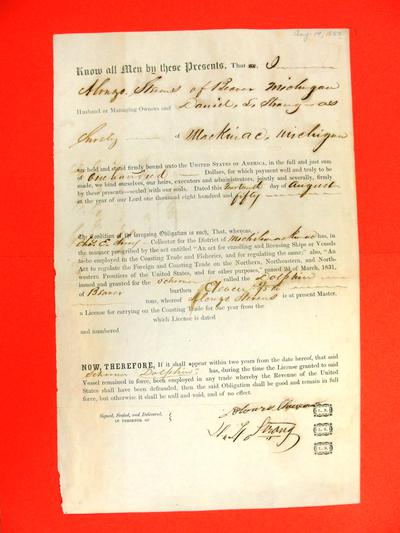 Aug. 14, 1850
Know all Men by these Presents, That we, I
Alonzo Stevens of Beaver Michigan
Husband or Managing Owners and Daniel S. Strang as
Surety of Mackinac, Michigan
are held and stand firmly bound unto the UNITED STATES OF AMERICA, in the full and just sum
of One hundred Dollars, for which payment well and truly to be
made, we bind ourselves, our heirs, executors and administrators, jointly and severally, firmly
by these presents—sealed with our seals. Dated this fourteenth day of August
in the year of our Lord one thousand eight hundred and fifty
The Condition of the foregoing Obligation is such, That, whereas,
Chas E. Collector for the District of Michilimackinac has, in
the manner prescribed by the act entitled "An act for enrolling and licensing Ships or Vessels
to be employed in the Coasting Trade and Fisheries, and for regulating the same; also, "An
Act to regulate the Foreign and Coasting Trade on the Northern, Northeastern, and North-
western Frontiers of the United States, and for other purposes," passed 2d of March, 1831,
issued and granted for the Schooner called the Dolphin
of Beaver burthen Eleven
tons, whereof Alonzo Stevens is at present Master,
a License for carrying on the Coasting Trade for one year from the
which License is dated
and numbered
NOW, THEREFORE, If it shall appear within two years from the date hereof, that said
Schooner Dolphin has, during the time the License granted to said
Vessel remained in force, been employed in any trade whereby the Revenue of the United
States shall have been defrauded, then the said Obligation shall be good and remain in full
force, but otherwise it shall be null and void, and of no effect.
Signed, Sealed, and Delivered,
IN PRESENCE OF
Alonzo Stevens L. S.
L. S.
Strang L. S.